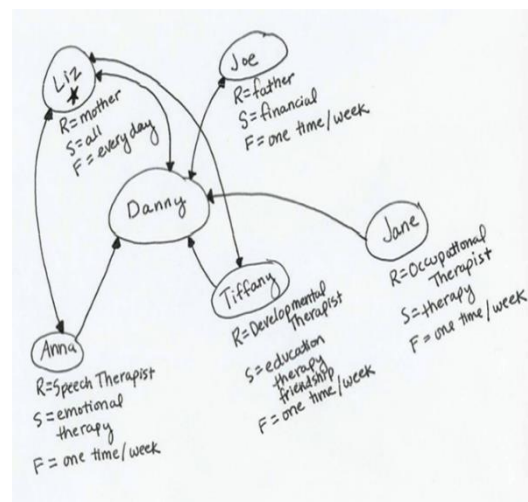 Liz
R=mother
S=all
F=every day
Joe
R=father
S=financial
F=one time/week
Danny
Jane
R=Occupational
Therapist
S=therapy
F=one time/week
Tiffany
R=Developmental
Therapist
S=education
therapy
friendship
F=one time/week
Anna
R=Speech Therapist
S=emotional
therapy
F=one time/week